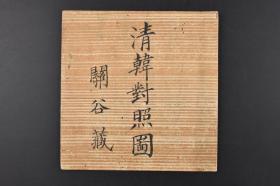 清韓對照圖
關谷藏